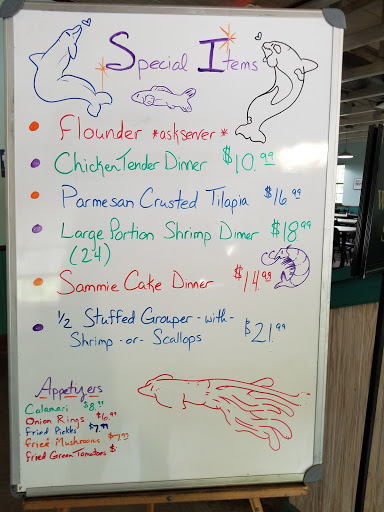 Special Items
Flounder *ask server*
Chicken Tender Dinner $10.99
Parmesan Crusted Tilapia $16.99
Large Portion Shrimp Dinner $18.99
(24)
Sammie Cake Dinner $14.99
1/2 Stuffed Grouper - with -
Shrimp - or - Scallops $21.99
Appetyers
Calamari $8.99
Onion Rings $6.99
Fried Pickles $7.99
Fried Mushrooms $7.99
Fried Green Tomatoes $